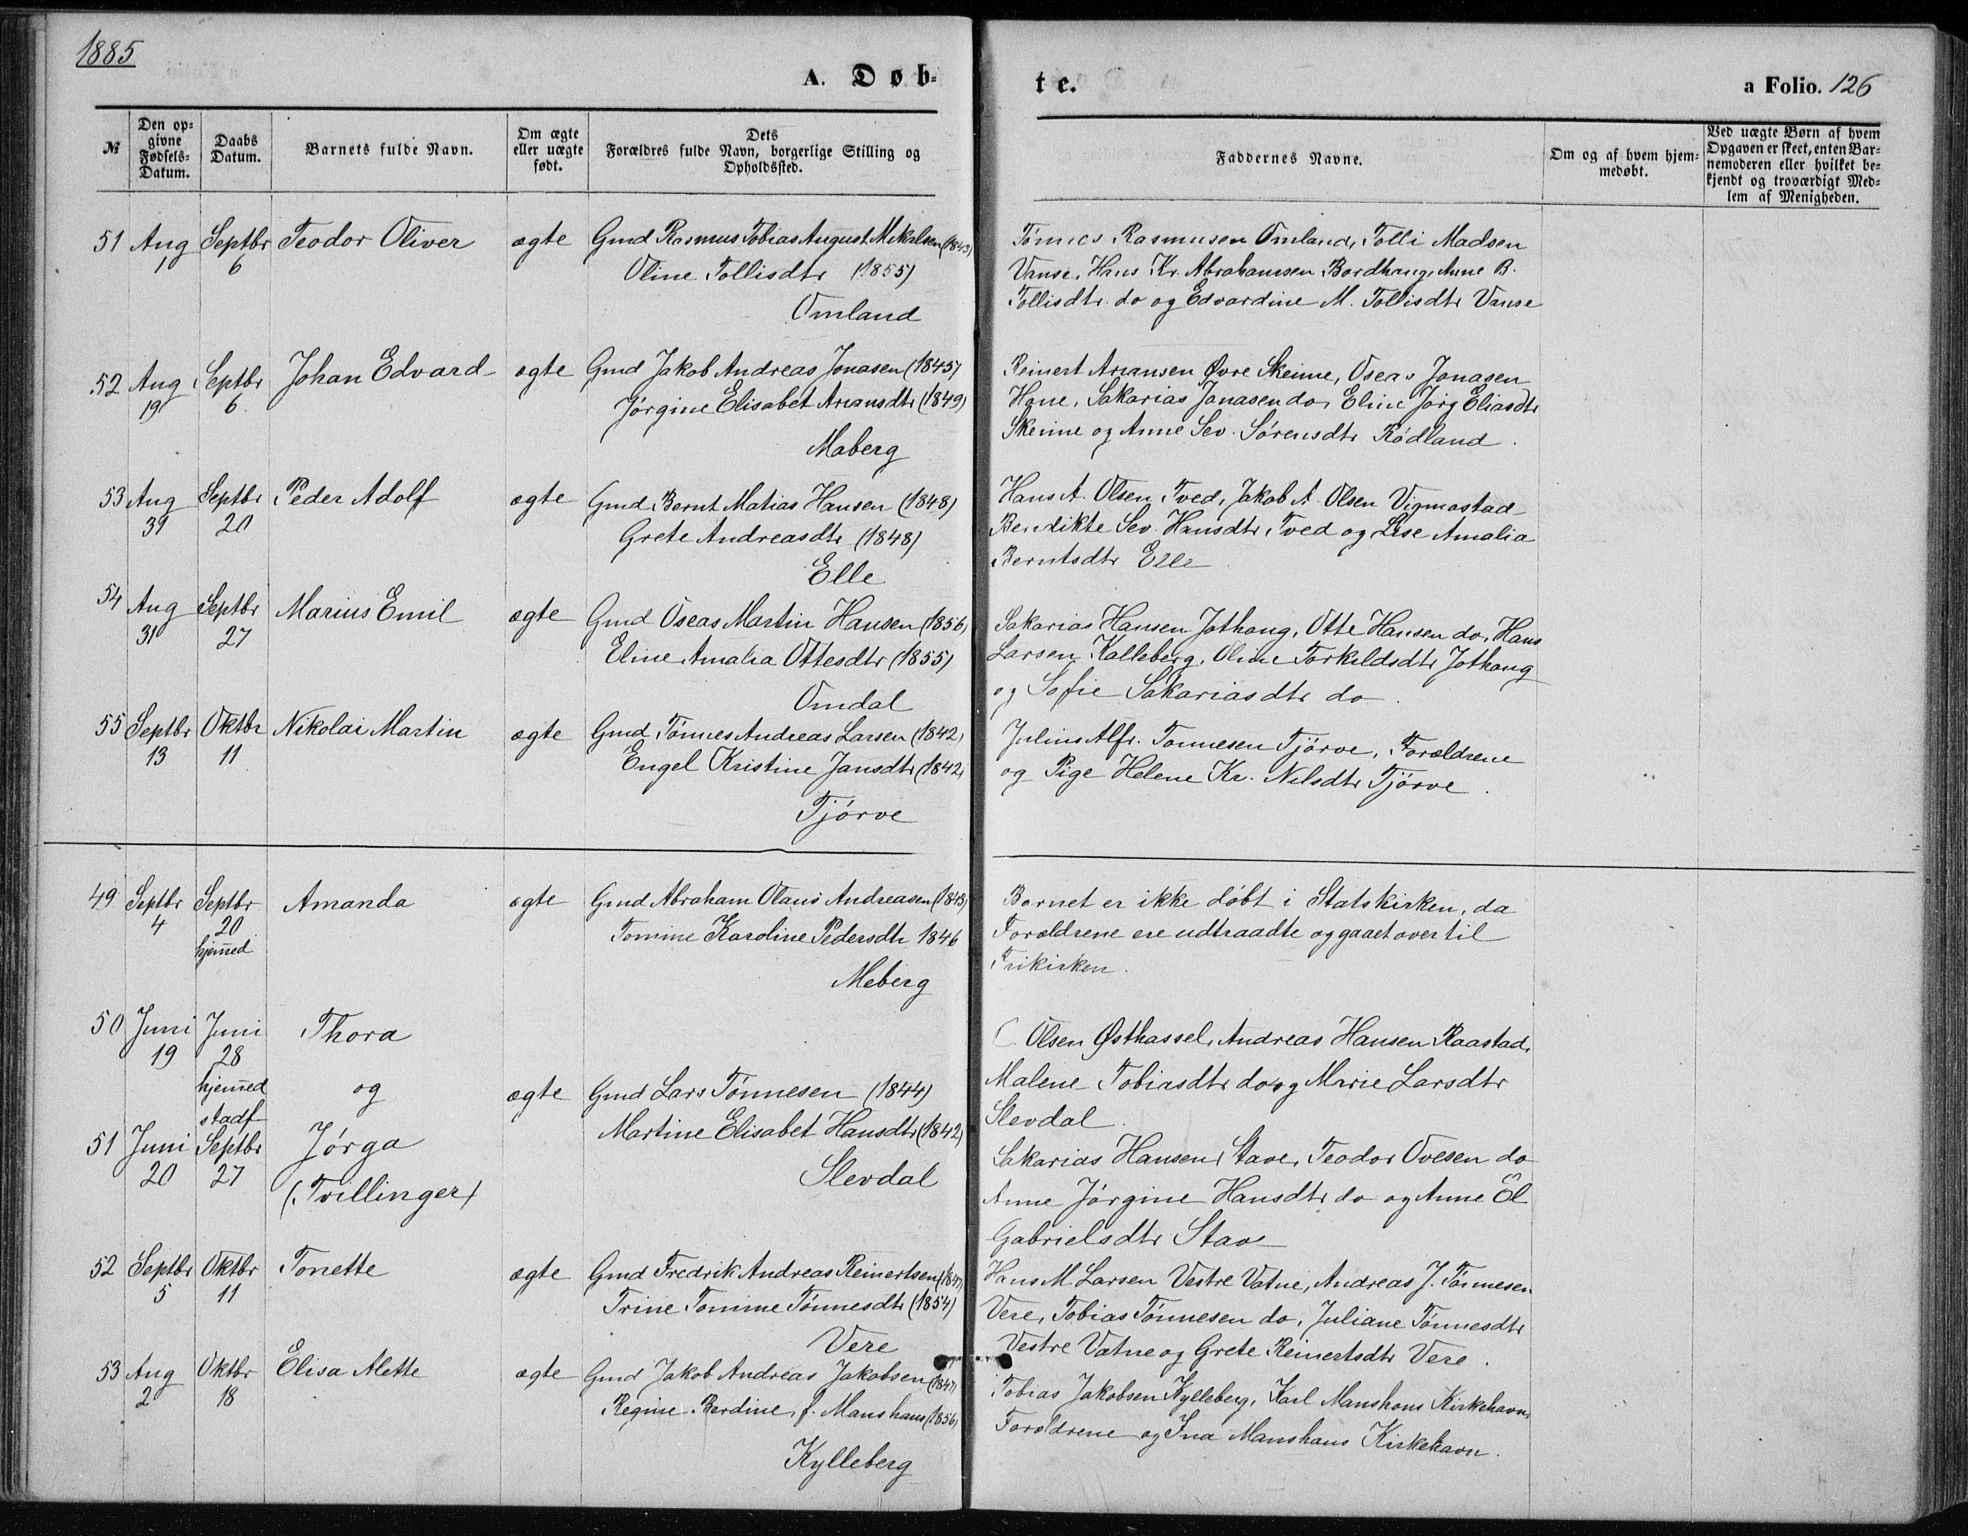 1885
A. Døb-
te.
a Folio. 126
№
Den op-
givne
Fødsels-
Datum.
Daabs
Datum.
Barnets fulde Navn.
Om ægte
eller uægte
født.
Dets
Forældres fulde Navn, borgerlige Stilling og
Opholdssted.
Faddernes Navne.
Om og af hvem hjem-
medøbt.
Ved uægte Børn af hvem
Opgaven er skeet, enten Bar-
nemoderen eller hvilket be-
kjendt og troværdigt Med-
lem af Menigheden.
51 Aug Septbr Teodor Oliver ægte Gmd Rasmus Tobias August Mikalsen (1843)
1 6 Oline Tollisdtr (1855)
Omland
Tønnes Rasmusen Omland, Tolli Madsen
Vanse, Hans Kr. Abrahamsen Bordhaug, Anne B.
Tollisdtr do og Edvardine M. Tollisdtr Vanse
52 Aug Septbr Johan Edvard ægte Gmd Jakob Andreas Jonasen (1845)
19 6 Jørgine Elisabet Ariansdtr (1849)
Maberg
Reinert Ariansen Øvre Skeime, Oseas Jonasen
Hane, Sakarias Jonasen do, Eline Jørg Eliasdtr
Skeime og Anne Sev. Sørensdtr Rødland.
53 Aug Septbr Peder Adolf ægte Gmd Bernt Matias Hansen (1848)
31 20 Grete Andreasdtr (1848)
Elle
Hans A. Olsen Tved, Jakob A. Olsen Vigmostad
Bendikte Sev. Hansdtr Tved og Lise Amalia
Berntsdtr Elle
54 Aug Septbr Marius Emil ægte Gmd Oseas Martin Hansen (1856)
31 27 Eline Amalia Ottesdtr (1855)
Omdal
Sakarias Hansen Jothaug, Otte Hansen do, Hans
Larsen Kalleberg, Oline Torkildsdtr Jothaug
og Sofie Sakariasdtr do.
55 Septbr Oktbr Nikolai Martin ægte Gmd Tønnes Andreas Larsen (1842)
13 11 Engel Kristine Jansdtr (1842)
Tjørve
Julius Alfr. Tønnesen Tjørve, Forældrene
og Pige Helene Kr. Nilsdtr Tjørve.
49 Septbr Septbr Amanda ægte Gmd Abraham Olaus Andreasen (1843)
4 20 Tomine Karoline Pedersdtr 1846
hjemed
Meberg
Barnet er ikke døbt i Statskirken, da
Forældrene ere udtraadte og gaaet over til
Frikirken.
50 Juni Juni Thora
19 28
hjemed og ægte Gmd Lars Tønnesen (1844)
stadf
Martine Elisabet Hansdtr (1842)
51 Juni Septbr Jørga
20 27 (Tvillinger)
Slevdal
Olsen Østhassel, Andreas Hansen Raastad,
Malene Tobiasdtr do og Marie Larsdtr
Slevdal.
Sakarias Hansen Stave, Teodor Ovesen do
Anne Jørgine Hansdtr do og Anne El
Gabrielsdtr Stave
52 Septbr Oktbr Tonette ægte Gmd Fredrik Andreas Reinertsen (1847)
5 11 Trine Tomine Tønnesdtr (1854)
Vere
Hans M. Larsen Vestre Vatne, Andreas J. Tønnesen
Vere, Tobias Tønnesen do, Juliane Tønnesdtr
Vestre Vatne og Grete Reinertsdtr Vere.
53 Aug Oktbr Elisa Alette ægte Gmd Jakob Andreas Jakobsen (1847)
2 18 Regine Berdine, f. Manshaus (1856)
Kylleberg
Tobias Jakobsen Kylleberg, Karl Manshaus Kirkehavn,
Forældrene og Ina Manshaus Kirkehavn.